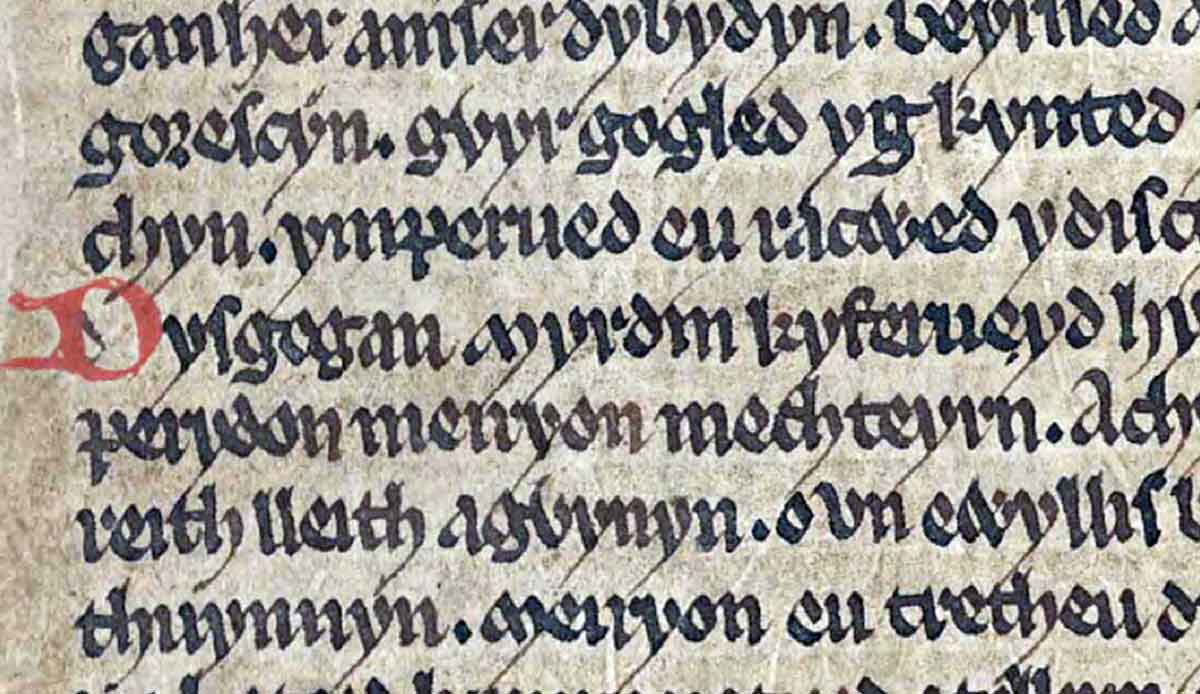 ganher amser dybydyn. beyrned
gorescyn. gvyr gogled yg kynted
chyn. ymperued eu racwed y disc
Dysgogan myrdin kyferueyd hy
perydon meiryon mechteyrn. Ach
reith lleith agvynyn. o vn ewyllis b
thuynnyn. meiryon eu tretheu d